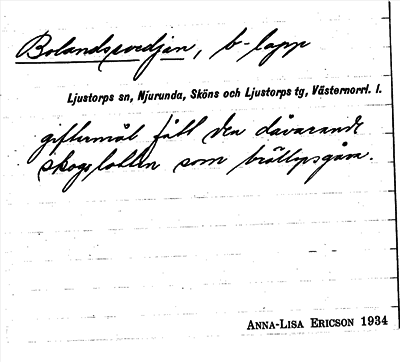 Bolandssvedjan, b-lapp
Ljustorps sn, Njurunda, Sköns och Ljustorps tg, Västernorrl. l.
giftermål fått den dåvarande
skogslotten som bröllopsgåva.
ANNA-LISA ERICSON 1934